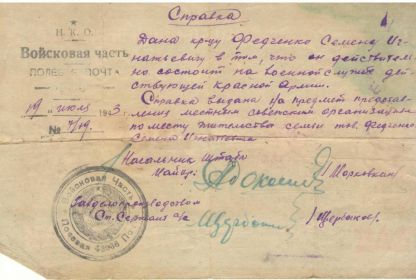 Справка
Н. К. О.
Войсковая часть
ПОЛЕВАЯ ПОЧТА
19 июля 1943 г.
№
Дана кр-цу Федченко Семену Иг-
натьевичу в том, что он действитель-
но состоит на военной службе дей-
ствующей Красной Армии.
Справка выдана на предмет представ-
ления местным советским организациям
по месту жительства семьи тов. Федченко
Семена Игнатьевича
Начальник штаба
Майор
Делопроизводством
Ст. Сержант а/с
/Щербаков/
Войсковая Часть
Полевая